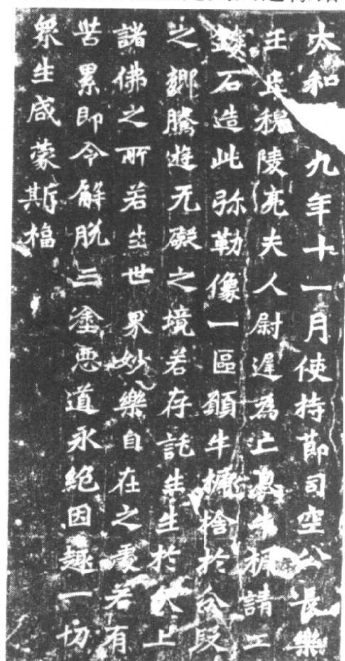 太和 九年十一月使持節司空公長樂
王丘穆陵亮夫人尉遲為亡息牛橛請工
鏤石造此弥勒像一區願牛橛捨於分段
之鄉騰遊无礙之境若存託生生於天上
諸佛之所若生世界妙樂自在之處若有
苦累即令解脫三塗惡道永絕因趣一切
眾生咸蒙斯福